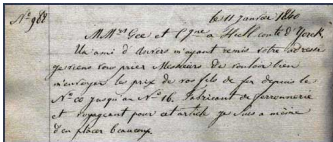 No 988
le 11 Janvier 1860
M. Mrs Gee et Cgnie a Hull conté d'Yorck
Un ami d'Anvers m'ayant remis votre adresse
je viens vous prier Messieurs de vouloir bien
m'envoyer le prix de vos fils de fer depuis le
No 00 jusqu'au No 16. Fabricant de ferronnerie
et voyageant pour cet article je suis a même
d'en placer beaucoup